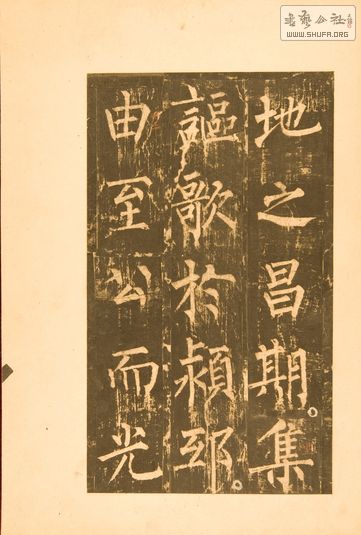 書藝公社
WWW.SHUFA.ORG
地之昌期集
謳歌於潁邸
由至公而光